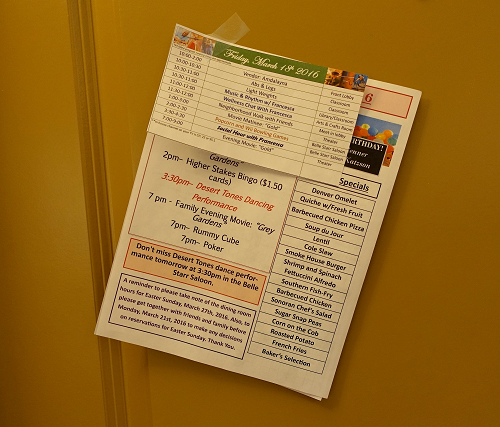 Friday, March 18th 2016
10:00-2:00 Vendor: Amdalayna Front Lobby
10:00-10:30 Abs & Legs Classroom
10:30-11:00 Light Weights Classroom
Music & Rhythm w/ Francessa Classroom
Wellness Chat With Francessa Library/Classroom
Neighborhood Walk with Friends Meet in lobby
Movie Matinee: "Gold" Theatre
Popcorn and Wii Bowling Games Belle Starr Saloon
Social Hour with Francesca Belle Starr Saloon
Evening Movie: "Gold" Theater
6
BIRTHDAY!
Gardens"
2pm- Higher Stakes Bingo ($1.50
cards)
3:30pm- Desert Tones Dancing
Performance
7 pm - Family Evening Movie: "Grey
Gardens"
7pm- Rummy Cube
7pm- Poker
Don't miss Desert Tones dance perfor-
mance tomorrow at 3:30pm in the Belle
Starr Saloon.
A reminder to please take note of the dining room
hours for Easter Sunday, March 27th, 2016. Also, to
please get together with friends and family before
Monday, March 21st, 2016 to make any decisions
on reservations for Easter Sunday. Thank You.
Specials
Denver Omelet
Quiche w/Fresh Fruit
Barbecued Chicken Pizza
Soup du Jour
Lentil
Cole Slaw
Smoke House Burger
Shrimp and Spinach
Fettuccini Alfredo
Southern Fish-Fry
Barbecued Chicken
Sonoran Chef's Salad
Sugar Snap Peas
Corn on the Cob
Roasted Potato
French Fries
Baker's Selection